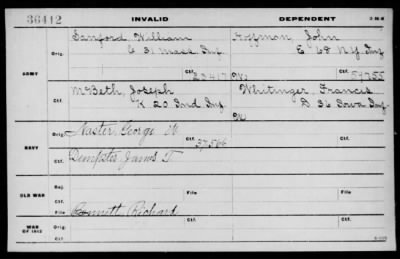 36412 INVALID DEPENDENT 3-268
Sanford William Hoffman, John
Orig. C 3, Mass Inf E 68 N.Y. Inf
ARMY Ctf. 23417 W. 59755
McBeth, Joseph Whitinger, Francis
Orig. K 20 Ind Inf D 36 Iowa Inf
Ctf. W
Orig. Naster, George W
NAVY Ctf. 37566
Dempster, James T.
Rej.
OLD WAR Ctf. File Ctf. File
File Bennett, Richard
WAR OF 1812 Orig. Ctf. Ctf.